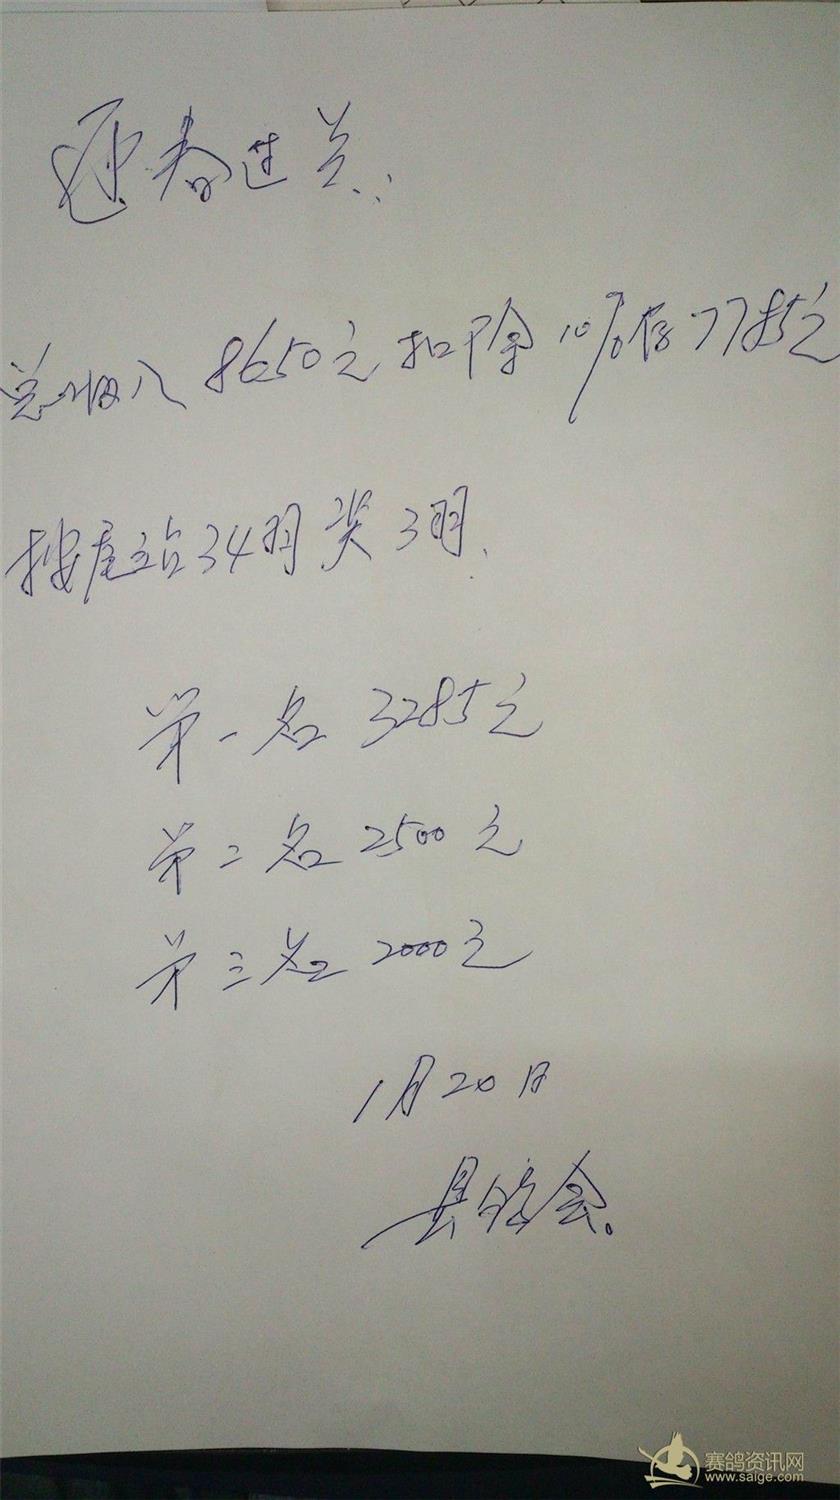 迎春过关:
总收入8650元扣除10%存7785元
按尾站34羽奖3羽.
第一名 3285元
第二名 2500元
第三名 2000元
1月20日
县鸽会。
赛鸽资讯网
www.saige.com